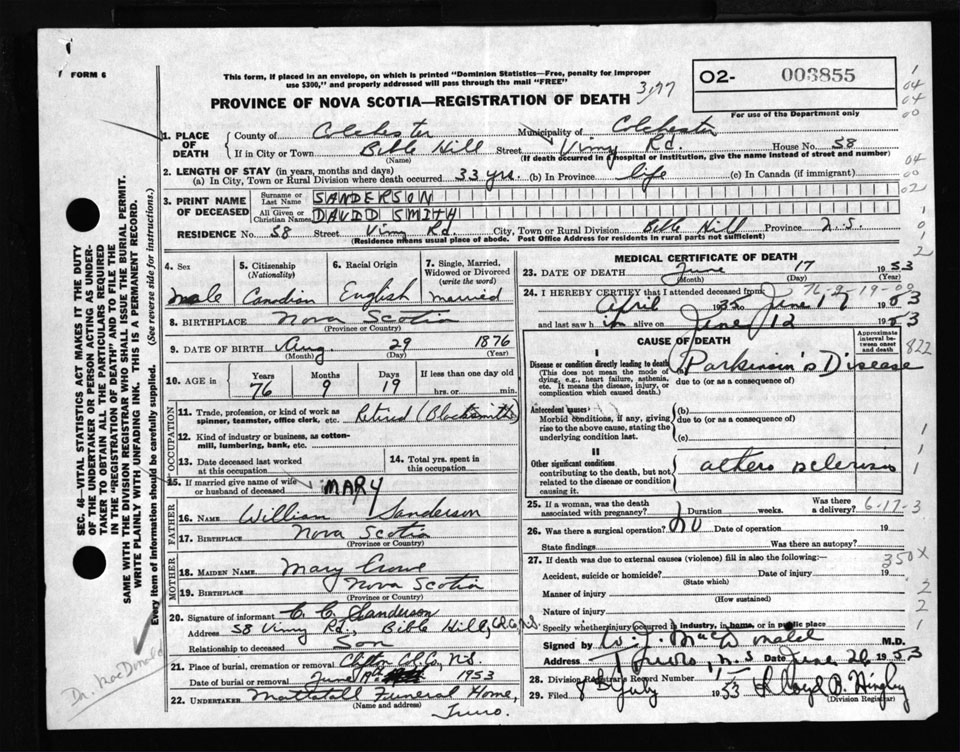 FORM 6
This form, if placed in an envelope, on which is printed "Dominion Statistics—Free, penalty for improper
use $300," and properly addressed will pass through the mail "FREE"
02- 003855
PROVINCE OF NOVA SCOTIA—REGISTRATION OF DEATH 3177
For use of the Department only
1. PLACE OF DEATH
County of Colchester Municipality of Colchester
If in City or Town Bible Hill Street Vimy Rd. House No. 58
(Name) (If death occurred in a hospital or institution, give the name instead of street and number)
2. LENGTH OF STAY (in years, months and days)
(a) In City, Town or Rural Division where death occurred 33 yrs. (b) In Province life (c) In Canada (if immigrant)
3. PRINT NAME OF DECEASED
Surname or Last Name SANDERSON
All Given or Christian Names DAVID SMITH
RESIDENCE No. 58 Street Vimy Rd. City, Town or Rural Division Bible Hill Province N.S.
(Residence means usual place of abode. Post Office Address for residents in rural parts not sufficient)
4. Sex male
5. Citizenship (Nationality) Canadian
6. Racial Origin English
7. Single, Married, Widowed or Divorced (write the word) married
8. BIRTHPLACE Nova Scotia
(Province or Country)
9. DATE OF BIRTH Aug 29 1876
(Month) (Day) (Year)
10. AGE in Years 76 Months 9 Days 19 If less than one day old hrs. or min.
OCCUPATION
11. Trade, profession, or kind of work as spinner, teamster, office clerk, etc. Retired (Blacksmith)
12. Kind of industry or business, as cotton-mill, lumbering, bank, etc.
13. Date deceased last worked at this occupation
14. Total yrs. spent in this occupation
15. If married give name of wife or husband of deceased MARY
FATHER
16. NAME William Sanderson
17. BIRTHPLACE Nova Scotia
(Province or Country)
MOTHER
18. MAIDEN NAME Mary Crowe
19. BIRTHPLACE Nova Scotia
(Province or Country)
20. Signature of informant C. C. Sanderson
Address 58 Vimy Rd., Bible Hill, Col. Co. N.S.
Relationship to deceased Son
21. Place of burial, cremation or removal Clifton Col. Co., N.S.
Date of burial or removal June 19 1953
22. UNDERTAKER Mattatall Funeral Home,
(Name and address)
Truro.
MEDICAL CERTIFICATE OF DEATH
23. DATE OF DEATH June 17 1953
(Month) (Day)
76-9-19-00
24. I HEREBY CERTIFY that I attended deceased from
April 1935 to June 17 1953
and last saw him alive on June 12 1953
CAUSE OF DEATH
Approximate interval between onset and death
I
Disease or condition directly leading to death
(This does not mean the mode of dying, e.g., heart failure, asthenia, etc. It means the disease, injury, or complication which caused death.)
(a) Parkinson's Disease
due to (or as a consequence of)
Antecedent causes
Morbid conditions, if any, giving rise to the above cause, stating the underlying condition last.
(b)
due to (or as a consequence of)
(c)
II
Other significant conditions
contributing to the death, but not related to the disease or condition causing it.
athero sclerosis
25. If a woman, was the death associated with pregnancy? Duration weeks. Was there a delivery?
6-17-3
26. Was there a surgical operation? no Date of operation 19
State findings Was there an autopsy?
27. If death was due to external causes (violence) fill in also the following:—
350X
Accident, suicide or homicide? Date of injury 19
(State which)
Manner of injury
(How sustained)
Nature of injury
Specify whether injury occurred in industry, in home, or in public place
Signed by W. J. MacDonald M.D.
Address Truro, N.S Date June 20, 1953
28. Division Registrar's Record Number
29. Filed 8th July 1953 Lloyd B. Hingley
(Division Registrar)
SEC. 46—VITAL STATISTICS ACT MAKES IT THE DUTY
OF THE UNDERTAKER OR PERSON ACTING AS UNDER-
TAKER TO OBTAIN ALL THE PARTICULARS REQUIRED
IN THE "REGISTRATION OF DEATH" AND TO FILE THE
SAME WITH THE DIVISION REGISTRAR WHO SHALL ISSUE THE BURIAL PERMIT.
WRITE PLAINLY WITH UNFADING INK. THIS IS A PERMANENT RECORD.
Every item of Information should be carefully supplied. (See reverse side for instructions.)
Dr. MacDonald
1
04
04
00
04
02
1
0
1
2
822
1
1
1
2
2
1